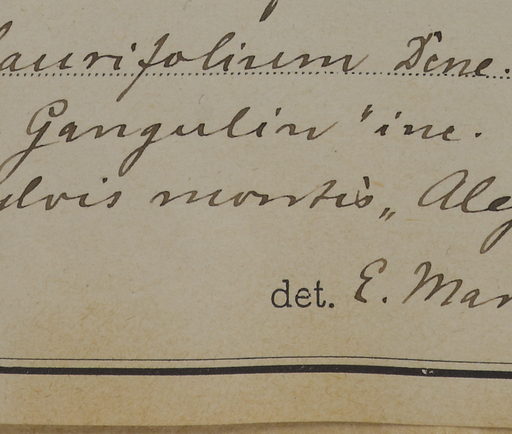 laurifolium Dcne.
Gangulin "inc.
ylvis montis„ Aleg
det. E. Mar